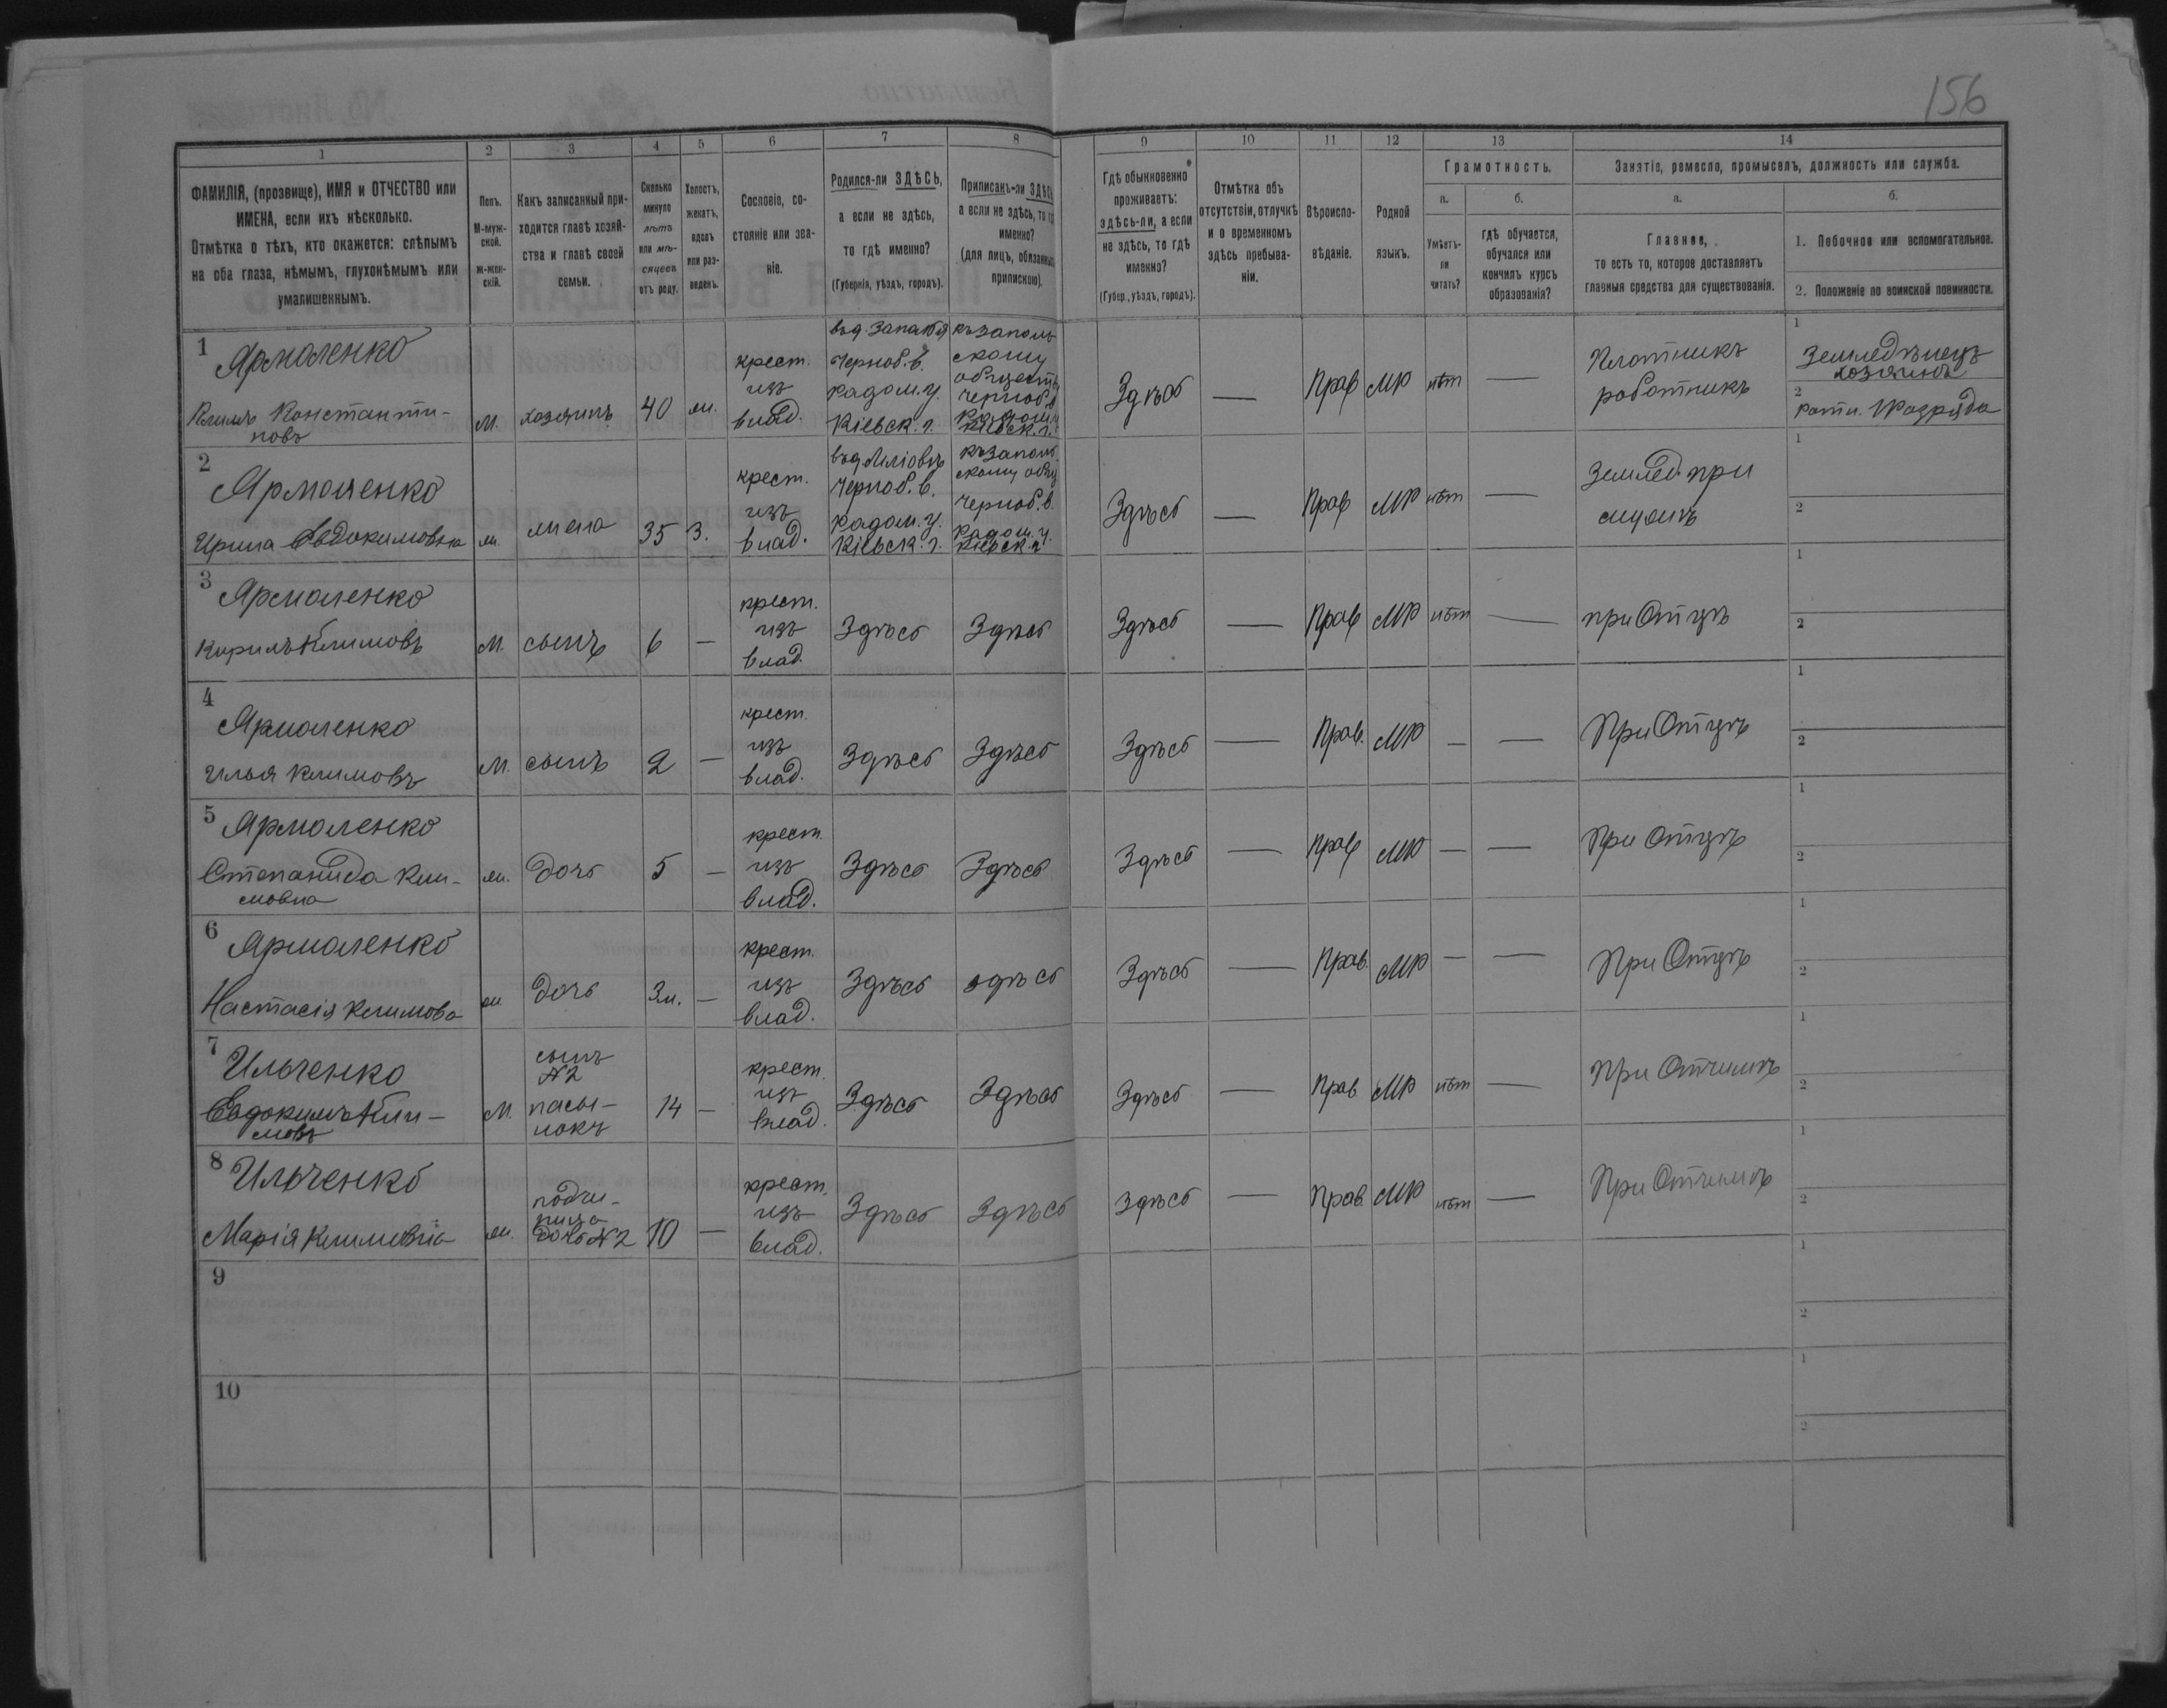 156
1 2 3 4 5 6 7 8 9 10 11 12 13 14
ФАМИЛІЯ, (прозвище), ИМЯ и ОТЧЕСТВО или
ИМЕНА, если ихъ нѣсколько.
Отмѣтка о тѣхъ, кто окажется: слѣпымъ
на оба глаза, нѣмымъ, глухонѣмымъ или
умалишеннымъ.
Полъ.
М-муж-
ской.
ж-жен-
скій.
Какъ записанный при-
ходится главѣ хозяй-
ства и главѣ своей
семьи.
Сколько
минуло
лѣтъ
или мѣ-
сяцевъ
отъ роду.
Холостъ,
женатъ,
вдовъ
или раз-
веденъ.
Сословіе, со-
стояніе или зва-
ніе.
Родился-ли ЗДѢСЬ,
а если не здѣсь,
то гдѣ именно?
(Губернія, уѣздъ, городъ).
Приписанъ-ли ЗДѢСЬ
а если не здѣсь, то гдѣ
именно?
(для лицъ, обязанныхъ
припискою).
Гдѣ обыкновенно
проживаетъ:
здѣсь-ли, а если
не здѣсь, то гдѣ
именно?
(Губер., уѣздъ, городъ).
Отмѣтка объ
отсутствіи, отлучкѣ
и о временномъ
здѣсь пребыва-
ніи.
Вѣроиспо-
вѣданіе.
Родной
языкъ.
Грамотность.
а.
Умѣетъ-
ли
читать?
б.
гдѣ обучается,
обучался или
кончилъ курсъ
образованія?
Занятіе, ремесло, промыселъ, должность или служба.
а.
Главное,
то есть то, которое доставляетъ
главныя средства для существованія.
б.
1. Побочное или вспомогательное.
2. Положеніе по воинской повинности.
1 Ярмоленко
Климъ Константи-
новъ
М. хозяинъ 40 ж.
крест.
изъ
влад.
Черноб. в.
Радом. у.
Кіевск. г.
обществу
Черноб. в.
Радом. у.
Кіевск. г.
Здѣсь — Прав МР нѣт —
Плотникъ
работникъ
1 Земледѣлецъ
хозяинъ
2 ратн. 1 разряда
2 Ярмоленко
Ирина Евдокимовна
ж. жена 35 З.
крест.
изъ
влад.
Черноб. в.
Радом. у.
Кіевск. г.
скому общ
Черноб. в.
Радом. у.
Кіевск. г
Здѣсь — Прав МР нѣт —
Землед. при
мужѣ
1
2
3 Ярмоленко
Кирилъ Климовъ
М. сынъ 6 —
крест.
изъ
влад.
Здѣсь Здѣсь Здѣсь — Прав МР нѣт — при Отцѣ
1
2
4 Ярмоленко
Илья Климовъ
М. сынъ 2 —
крест.
изъ
влад.
Здѣсь Здѣсь Здѣсь — Прав. МР — — При Отцѣ
1
2
5 Ярмоленко
Степанида Кли-
мовна
ж. дочь 5 —
крест.
изъ
влад.
Здѣсь Здѣсь Здѣсь — Прав МР — — При Отцѣ
1
2
6 Ярмоленко
Настасія Климова
ж дочь 3м. —
крест.
изъ
влад.
Здѣсь здѣсь Здѣсь — Прав. МР — — При Отцѣ
1
2
7 Ильченко
Евдокимъ Кли-
мовъ
М.
сынъ
№ 2
пасы-
нокъ
14 —
крест.
изъ
влад.
Здѣсь Здѣсь Здѣсь — Прав. МР нѣт — При Отчимѣ
1
2
8 Ильченко
Марія Климовна
ж.
падче-
рица
дочь № 2
10 —
крест.
изъ
влад.
Здѣсь Здѣсь Здѣсь — Прав. МР нѣт — При Отчимѣ
1
2
9
1
2
10
1
2